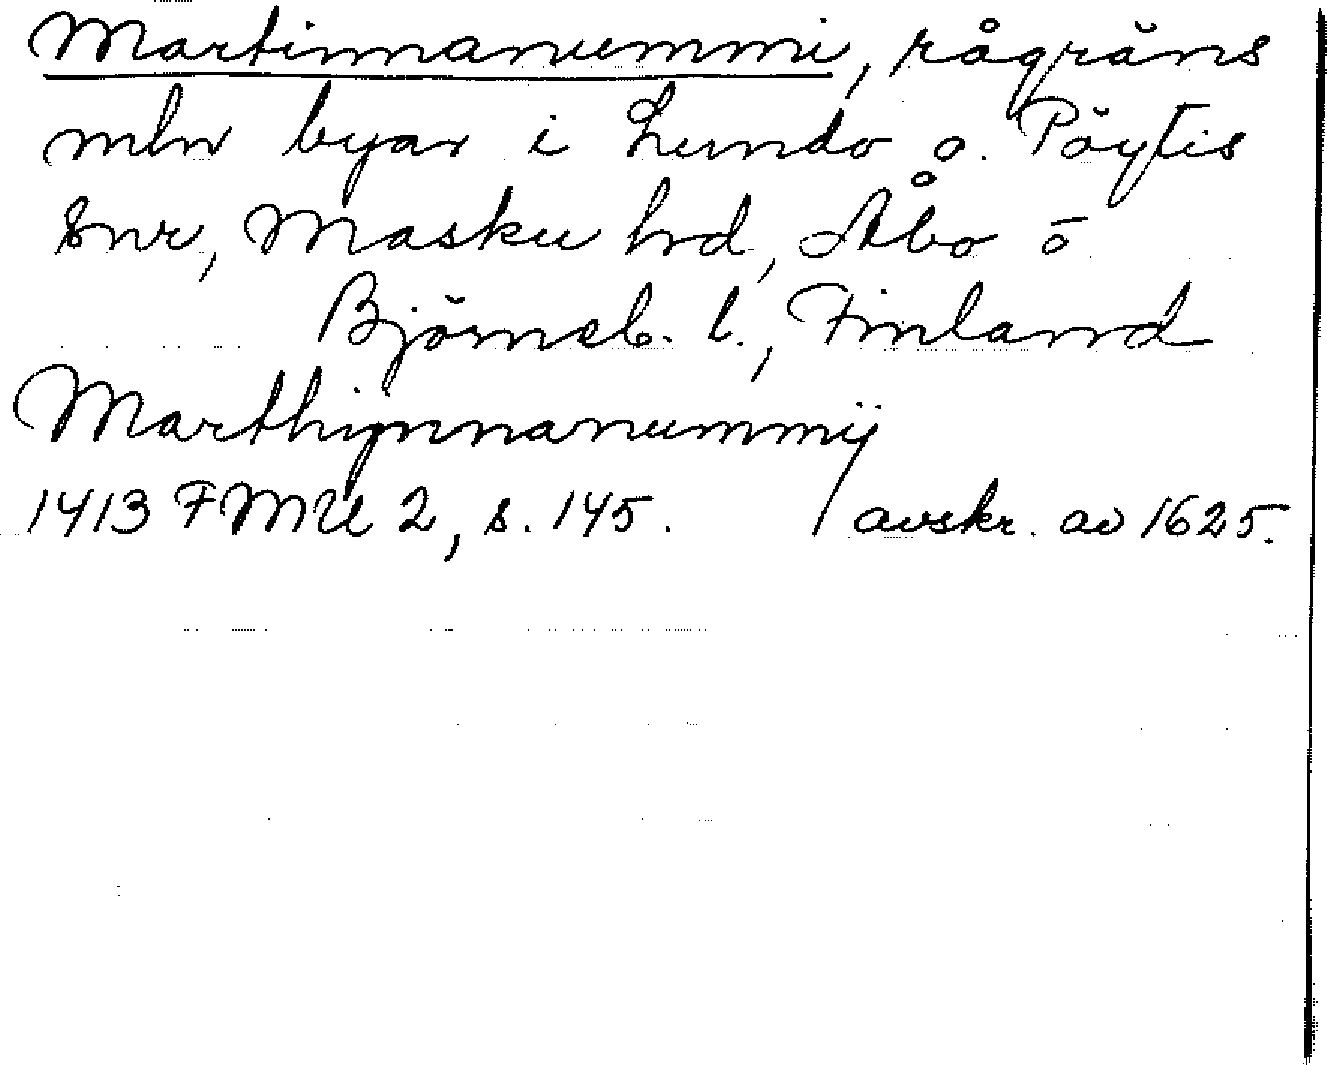 Martinnanummi, rågräns
mln byar i Lundo o. Pöytis
snr, Masku hd, Åbo o
Björneb. l., Finland
Marthynnanummij
1413 FMU 2, s. 145. / avskr. av 1625.